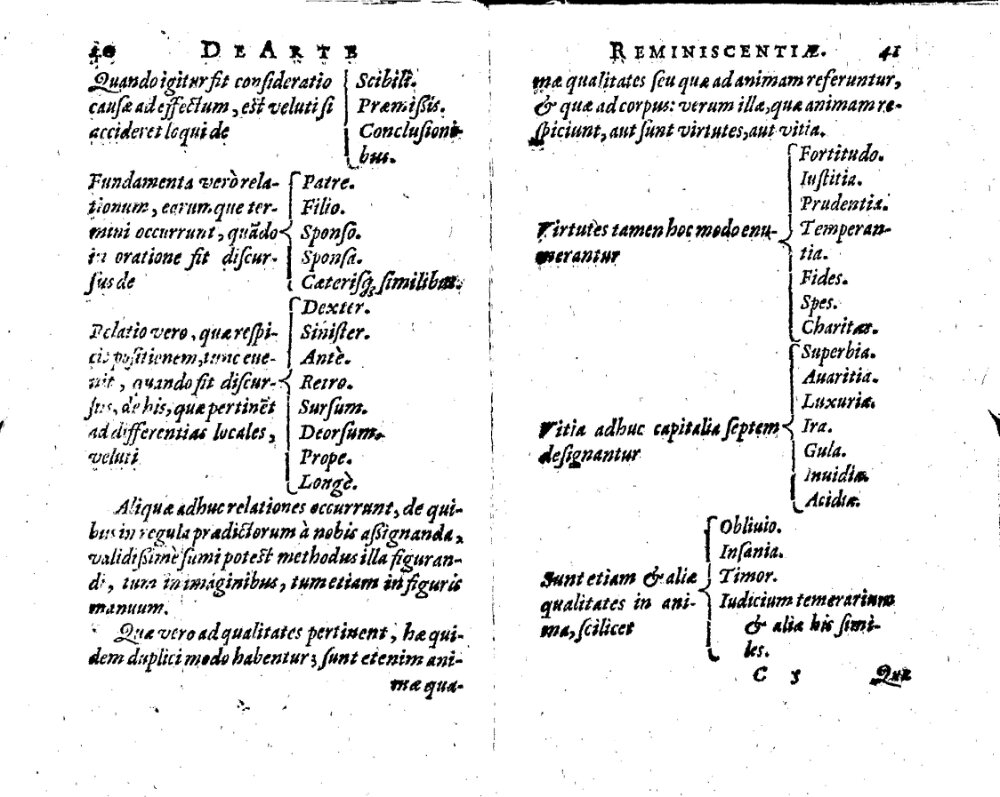 40 DE ARTE
Quando igitur fit consideratio
causæ ad effectum, est veluti si
accideret loqui de
Scibili.
Præmißis.
Conclusioni-
bus.
Fundamenta verò rela-
tionum, earumque ter-
mini occurrunt, quãdo
in oratione fit discur-
sus de
Patre.
Filio.
Sponso.
Sponsa.
Cæterisq; similibus.
Relatio vero, quæ respi-
cit positionem, tunc eue-
nit, quando fit discur-
sus, de his, quæ pertinẽt
ad differentias locales,
veluti
Dexter.
Sinister.
Antè.
Retro.
Sursum.
Deorsum.
Prope.
Longè.
Aliquæ adhuc relationes occurrunt, de qui-
bus in regula prædictorum à nobis aßignanda,
validißimè sumi potest methodus illa figuran-
di, tum in imaginibus, tum etiam in figuris
manuum.
Quæ vero ad qualitates pertinent, hæ qui-
dem duplici modo habentur; sunt etenim ani-
mæ qua-
REMINISCENTIÆ. 41
mæ qualitates seu quæ ad animam referuntur,
& quæ ad corpus: verum illæ, quæ animam re-
spiciunt, aut sunt virtutes, aut vitia.
Virtutes tamen hoc modo enu-
merantur
Fortitudo.
Iustitia.
Prudentia.
Temperan-
tia.
Fides.
Spes.
Charitas.
Vitia adhuc capitalia septem
designantur
Superbia.
Auaritia.
Luxuria.
Ira.
Gula.
Inuidia.
Acidia.
Sunt etiam & aliæ
qualitates in ani-
ma, scilicet
Obliuio.
Insania.
Timor.
Iudicium temerarium
& alia his simi-
les.
C 3 Quæ